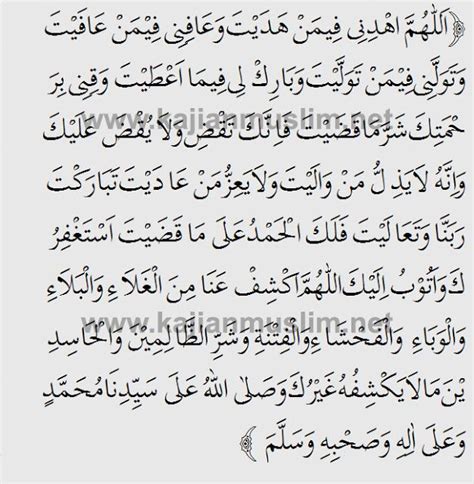 ﴿اَللّٰهُمَّ اهْدِنِى فِيمَنْ هَدَيْتَ وَعَافِنِى فِيمَنْ عَافَيْتَ
وَتَوَلَّنِى فِيْمَنْ تَوَلَّيْتَ وَبَارِكْ لِى فِيمَا اَعْطَيْتَ وَقِنِى بِرَ
حْمَتِكَ شَرَّمَا قَضَيْتَ فَاِنَّكَ تَقْضِ وَلَا يُقْضَ عَلَيْكَ
www.kajianmuslim.net
وَاِنَّهُ لَايَذِ لُّ مَنْ وَالَيْتَ وَلَايَعِزُّ مَنْ عَا دَيْتَ تَبَارَكْتَ
رَبَّنَا وَتَعَا لَيْتَ فَلَكَ الْحَمْدُ عَلَى مَا قَضَيْتَ اَسْتَغْفِرُ
كَ وَاَتُوْبُ اِلَيْكَ اللّٰهُمَّ اكْشِفْ عَنَا مِنَ الْغَلَاءِ وَالْبَلَاءِ
وَالْوَبَاءِ وَالْفَحْشَاءِ وَالْفِتْنَةِ وَشَرِّ الظَّالِمِيْنَ وَالْحَاسِدِ
www.kajianmuslim.net
يْنَ مَا لَايَكْشِفُهُ غَيْرُكَ وَصَلَى اللهُ عَلَى سَيِّدِنَا مُحَمَّدٍ
وَعَلَى اٰلِهِ وَصَحْبِهِ وَسَلَّمَ ﴾